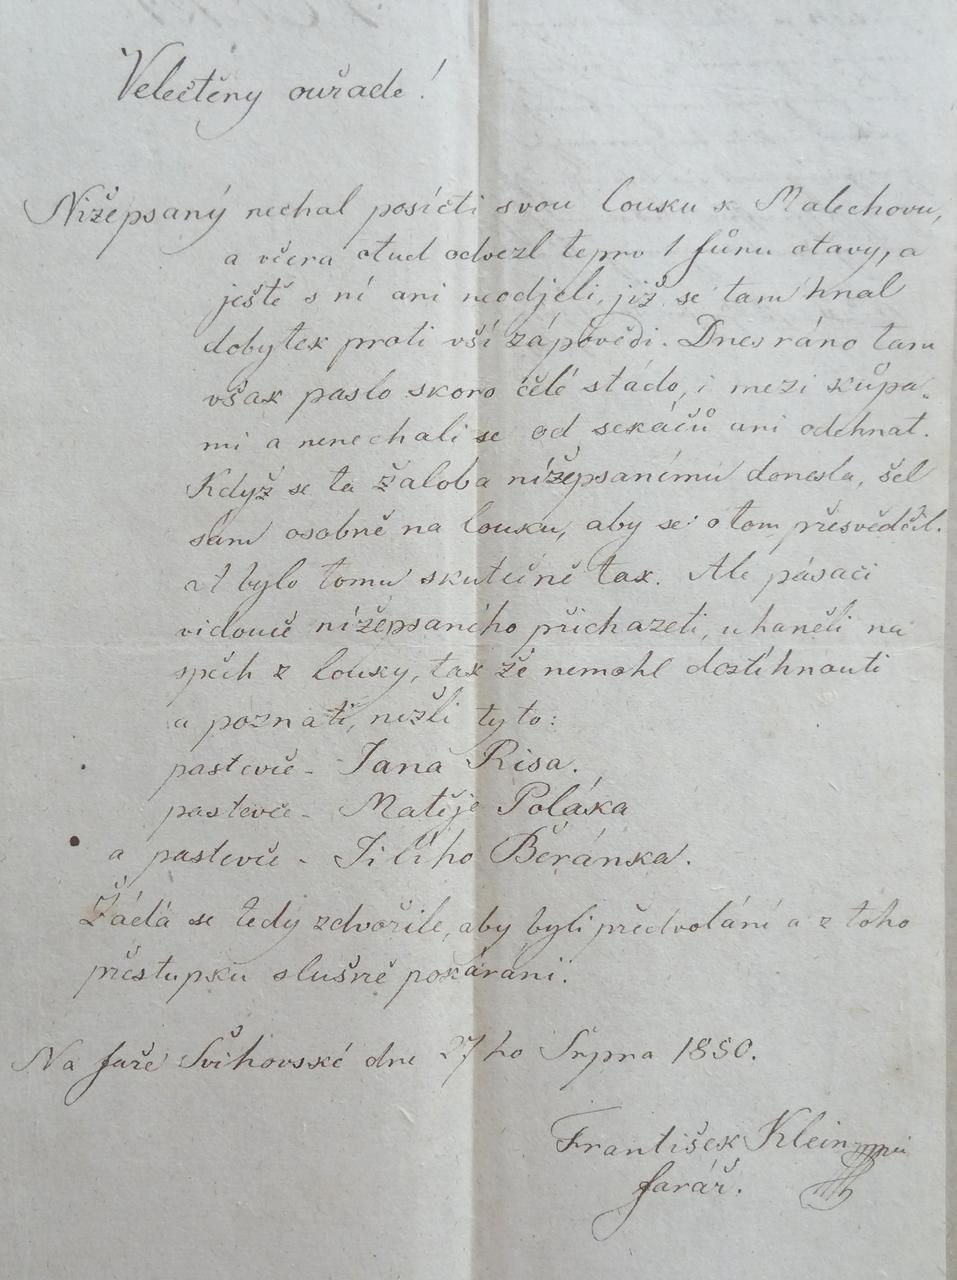 Velectěny ouřade!
Nížepsaný nechal posícti svou louku k Malechovu,
a včera otud odvezl tepro 1 fůru otavy, a
ještě s ní ani neodjeli, již se tam hnal
dobytek proti vší zápovědi. Dnes ráno tam
však paslo skoro čélé stádo, i mezi kůpa-
mi a nenechali se od sekáčů ani odehnat.
Když se ta žaloba nížepsanímu donesla, šel
sám osobně na louku, aby se o tom přesvědčil.
A bylo tomu skutečně tak. Ale pásaci
vidouce nížepsaního přicházeti, uhaněli na
spěch z louky, tak že nemohl dostihnouti
a poznati, nežli tyto:
pastevce - Jana Risa.
pastevce - Matěje Poláka
a pastevce - Jiliho Beránka.
Žádá se tedy zdvořile, aby byli předvoláni a z toho
přestupku slušně pokáráni.
Na faře Švihovské dne 27ho Srpna 1850.
František Klein mpia
farář.